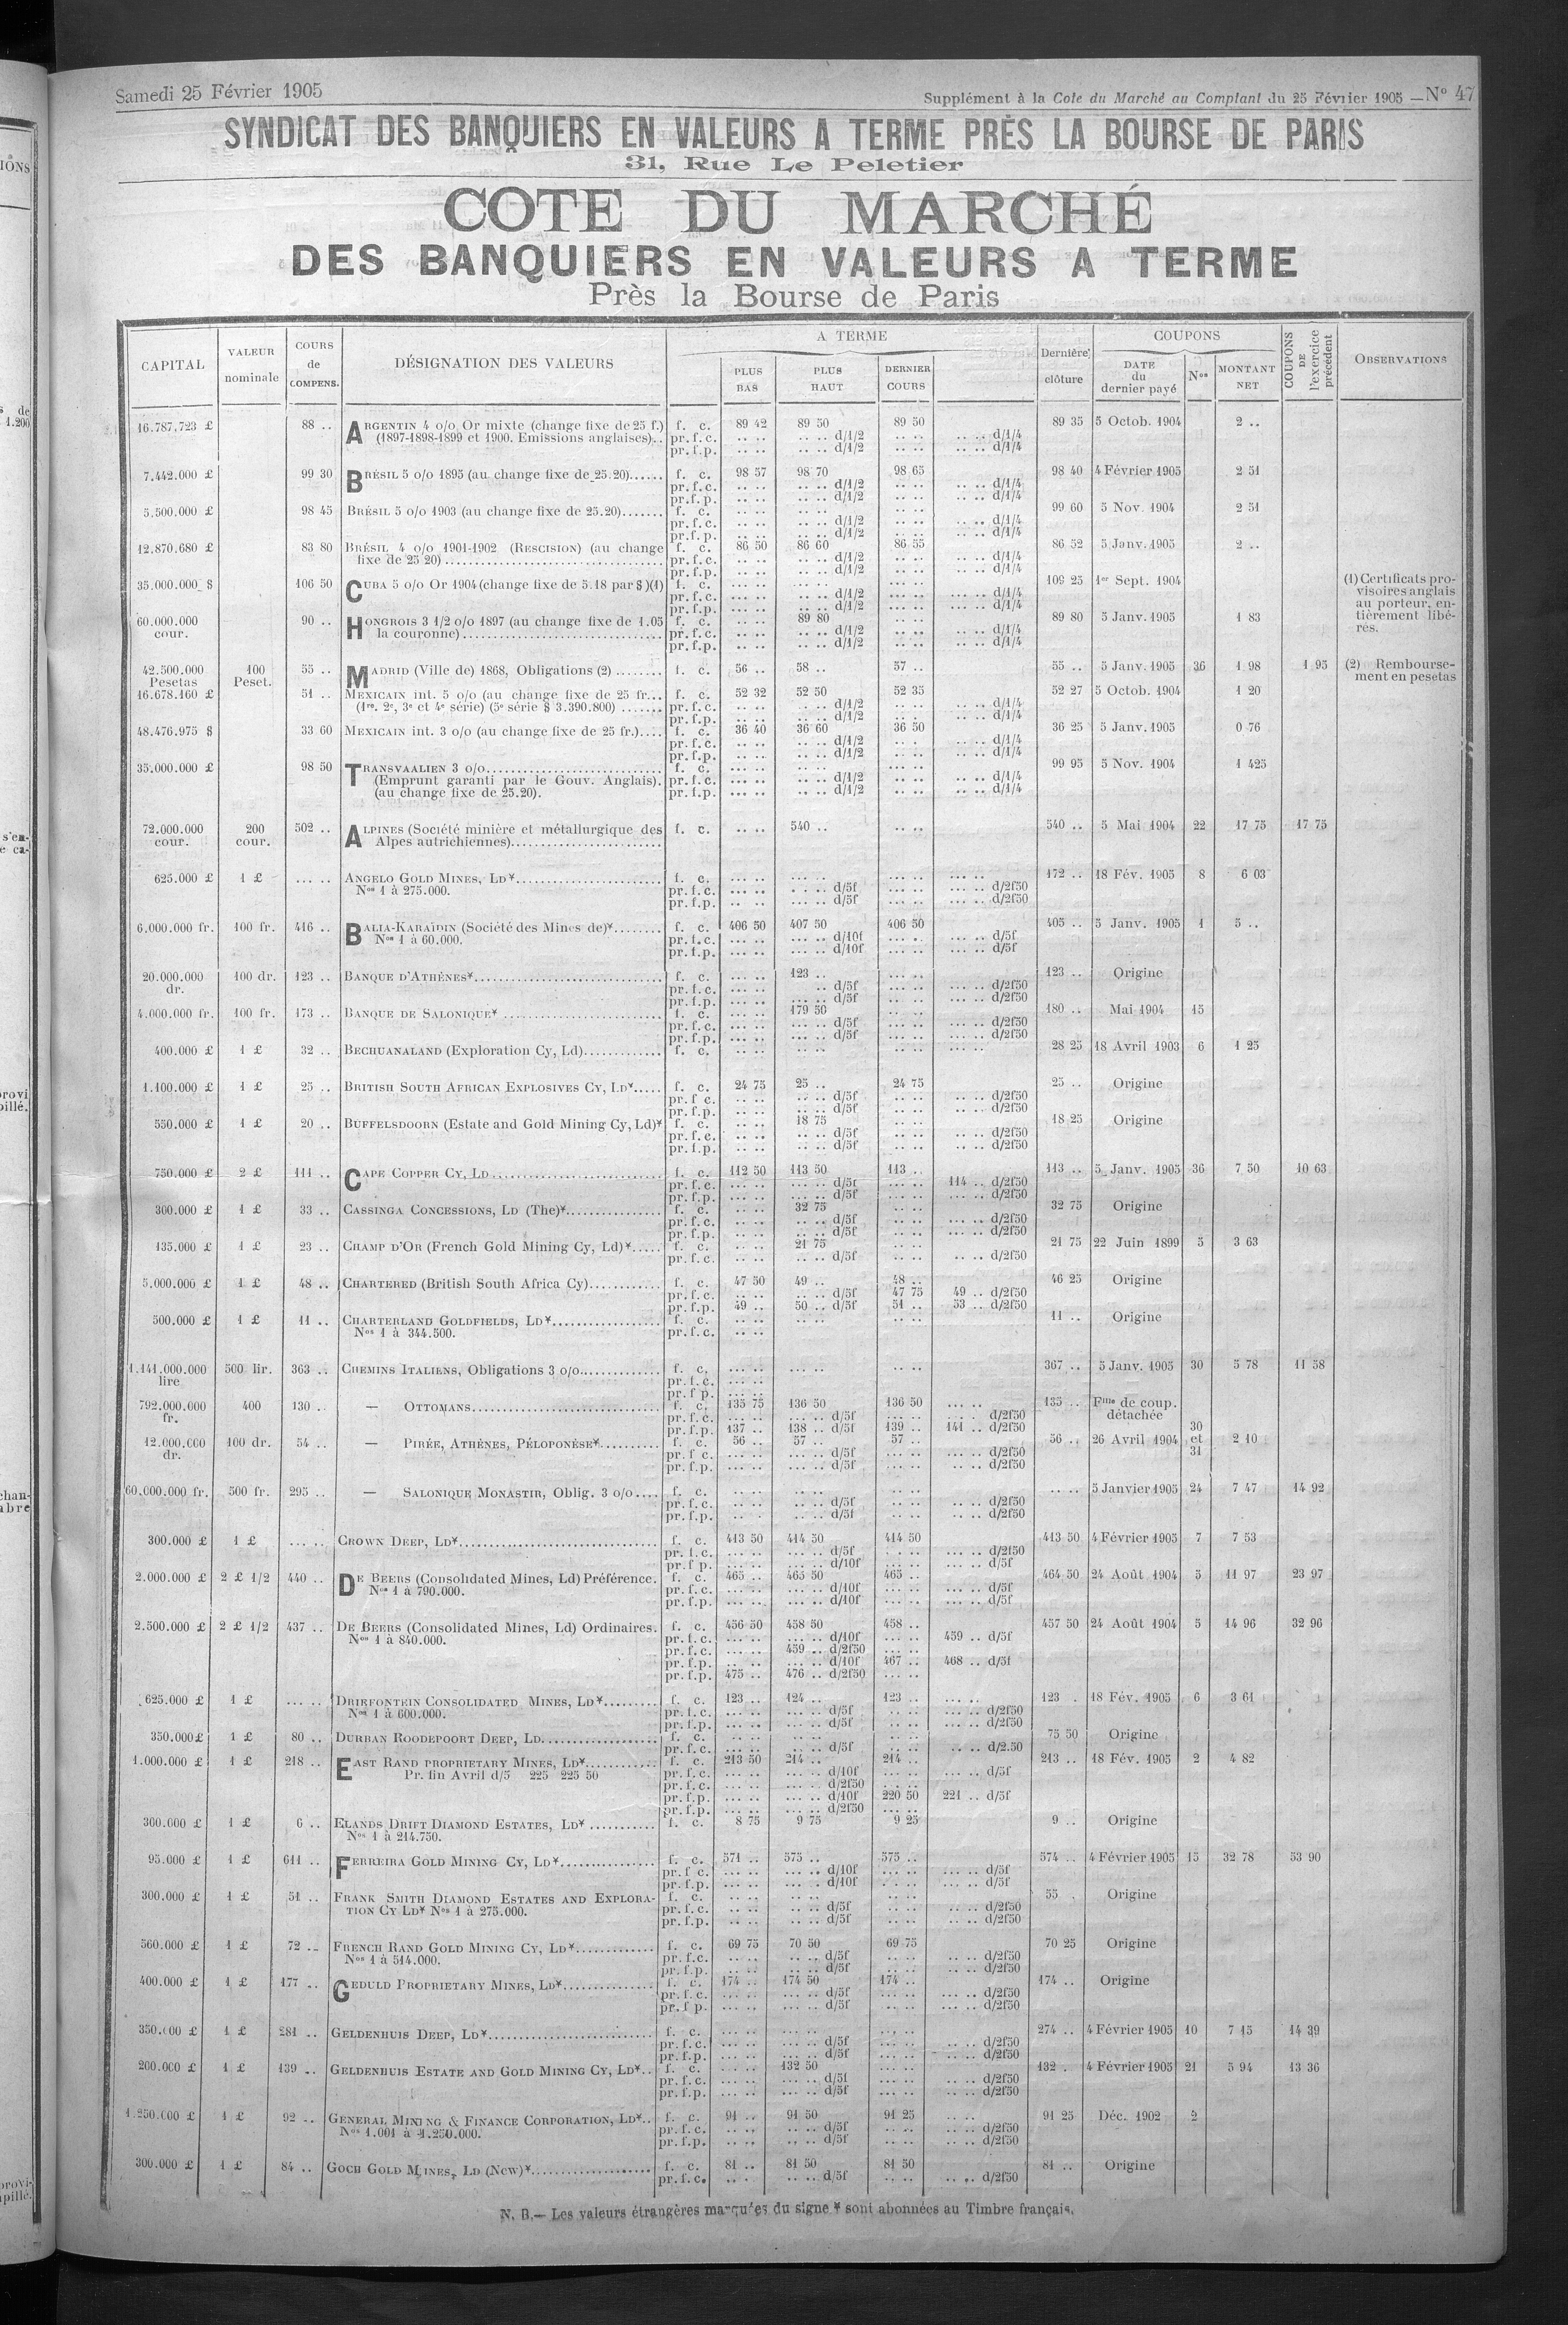 Samedi 25 Février 1905
Supplément à la Cote du Marché au Comptant du 25 Février 1905 — N° 47
SYNDICAT DES BANQUIERS EN VALEURS A TERME PRÈS LA BOURSE DE PARIS
31, Rue Le Peletier
COTE DU MARCHÉ
DES BANQUIERS EN VALEURS A TERME
Près la Bourse de Paris
CAPITAL VALEUR nominale COURS de COMPENS. DÉSIGNATION DES VALEURS A TERME PLUS BAS PLUS HAUT DERNIER COURS Dernière clôture COUPONS DATE du dernier payé Nos MONTANT NET COUPONS DE l'exercice précédent OBSERVATIONS
16.787.723 £ 88 .. ARGENTIN 4 o/o Or mixte (change fixe de 25 f.) f. c. 89 42 89 50 89 50 89 35 5 Octob. 1904 2 ..
(1897-1898-1899 et 1900. Emissions anglaises).. pr. f. c. .. .. .. .. d/1/2 .. .. .. .. d/1/4
pr. f. p. .. .. .. .. d/1/2 .. .. .. .. d/1/4
7.442.000 £ 99 30 BRÉSIL 5 o/o 1895 (au change fixe de 25.20)...... f. c. 98 57 98 70 98 65 98 40 4 Février 1905 2 51
pr. f. c. .. .. .. .. d/1/2 .. .. .. .. d/1/4
pr. f. p. .. .. .. .. d/1/2 .. .. .. .. d/1/4
5.500.000 £ 98 45 BRÉSIL 5 o/o 1903 (au change fixe de 25.20)....... f. c. .. .. .. .. .. .. 99 60 5 Nov. 1904 2 51
pr. f. c. .. .. .. .. d/1/2 .. .. .. .. d/1/4
pr. f. p. .. .. .. .. d/1/2 .. .. .. .. d/1/4
12.870.680 £ 83 80 BRÉSIL 4 o/o 1901-1902 (RESCISION) (au change f. c. 86 50 86 60 86 55 86 52 5 Janv. 1905 2 ..
fixe de 25 20) .......... pr. f. c. .. .. .. .. d/1/2 .. .. .. .. d/1/4
pr. f. p. .. .. .. .. d/1/2 .. .. .. .. d/1/4
35.000.000 $ 106 50 CUBA 5 o/o Or 1904 (change fixe de 5.18 par $)(1) f. c. 109 25 1er Sept. 1904 (1) Certificats pro-
visoires anglais
au porteur, en-
tièrement libé-
rés.
pr. f. c. ... .. .. .. d/1/2 ... .. ... .. d/1/4
pr. f. p. ... .. .. .. d/1/2 ... .. ... .. d/1/4
60.000.000 cour. 90 .. HONGROIS 3 1/2 o/o 1897 (au change fixe de 1.05 f. c. 89 80 89 80 5 Janv. 1905 1 83
la couronne).......... pr. f. c. .. .. .. .. d/1/2 .. .. .. .. d/1/4
pr. f. p. .. .. .. .. d/1/2 .. .. .. .. d/1/4
42.500.000 Pesetas 100 Peset. 55 .. MADRID (Ville de) 1868, Obligations (2) ........ f. c. 56 .. 58 .. 57 .. 55 .. 5 Janv. 1905 36 1 98 1 95 (2) Rembourse-
ment en pesetas
16.678.160 £ 51 .. MEXICAIN int. 5 o/o (au change fixe de 25 fr... f. c. 52 32 52 50 52 35 52 27 5 Octob. 1904 1 20
(1re. 2e, 3e et 4e série) (5e série $ 3.390.800) ....... pr. f. c. .. .. .. .. d/1/2 .. .. .. .. d/1/4
pr. f. p. .. .. .. .. d/1/2 .. .. .. .. d/1/4
48.476.975 $ 33 60 MEXICAIN int. 3 o/o (au change fixe de 25 fr.).... f. c. 36 40 36 60 36 50 36 25 5 Janv. 1905 0 76
pr. f. c. .. .. .. .. d/1/2 .. .. .. .. d/1/4
pr. f. p. .. .. .. .. d/1/2 .. .. .. .. d/1/4
35.000.000 £ 98 50 TRANSVAALIEN 3 o/o.......... f. c. 99 95 5 Nov. 1904 1 425
(Emprunt garanti par le Gouv. Anglais). pr. f. c. ... .. .. .. d/1/2 .. .. .. .. d/1/4
(au change fixe de 25.20). pr. f. p. ... .. .. .. d/1/2 .. .. .. .. d/1/4
72.000.000 cour. 200 cour. 502 .. ALPINES (Société minière et métallurgique des f. c. 540 .. 540 .. 5 Mai 1904 22 17 75 17 75
Alpes autrichiennes)..........
625.000 £ 1 £ ... .. ANGELO GOLD MINES, LD¥.......... f. c. 172 .. 18 Fév. 1905 8 6 03
Nos 1 à 275.000. pr. f. c. ... .. d/5f ... .. d/2f50
pr. f. p. ... .. d/5f ... .. d/2f50
6.000.000 fr. 100 fr. 416 .. BALIA-KARAÏDIN (Société des Mines de)¥........ f. c. 406 50 407 50 406 50 405 .. 5 Janv. 1905 1 5 ..
Nos 1 à 60.000. pr. f. c. ... .. ... .. d/10f ... .. ... .. d/5f
pr. f. p. ... .. ... .. d/10f ... .. ... .. d/5f
20.000.000 dr. 100 dr. 123 .. BANQUE D'ATHÈNES¥.......... f. c. 123 .. 123 .. Origine
pr. f. c. ... .. .. d/5f ... .. ... .. d/2f50
pr. f. p. ... .. ... .. d/5f ... .. ... .. d/2f50
4.000.000 fr. 100 fr. 173 .. BANQUE DE SALONIQUE¥ .......... f. c. 179 50 180 .. Mai 1904 15
pr. f. c. ... .. ... .. d/5f ... .. ... .. d/2f50
pr. f. p. ... .. ... .. d/5f ... .. ... .. d/2f50
400.000 £ 1 £ 32 .. BECHUANALAND (Exploration Cy, Ld)............ f. c. 28 25 18 Avril 1903 6 1 25
1.100.000 £ 1 £ 25 .. BRITISH SOUTH AFRICAN EXPLOSIVES CY, LD¥..... f. c. 24 75 25 .. 24 75 25 .. Origine
pr. f c. .. .. .. .. d/5f .. .. .. .. d/2f50
pr. f. p. .. .. .. .. d/5f .. .. .. .. d/2f50
550.000 £ 1 £ 20 .. BUFFELSDOORN (Estate and Gold Mining Cy, Ld)¥ f. c. 18 75 18 25 Origine
pr. f. c. .. .. .. .. d/5f .. .. .. .. d/2f50
pr. f. p. .. .. .. .. d/5f .. .. .. .. d/2f50
750.000 £ 2 £ 111 .. CAPE COPPER CY, LD .......... f. c. 112 50 113 50 113 .. 113 .. 5 Janv. 1905 36 7 50 10 63
pr. f. c. ... .. ... .. d/5f ... .. 114 .. d/2f50
pr. f. p. ... .. ... .. d/5f ... .. ... .. d/2f50
300.000 £ 1 £ 33 .. CASSINGA CONCESSIONS, LD (The)¥................ f. c. 32 75 32 75 Origine
pr. f. c. .. .. .. .. d/5f .. .. ... .. d/2f50
pr. f. p. .. .. .. .. d/5f .. .. ... .. d/2f50
135.000 £ 1 £ 23 .. CHAMP D'OR (French Gold Mining Cy, Ld)¥..... f. c. 21 75 21 75 22 Juin 1899 5 3 63
pr. f. c. .. .. .. .. d/5f .. .. .. .. d/2f50
5.000.000 £ 1 £ 48 .. CHARTERED (British South Africa Cy)............ f. c. 47 50 49 .. 48 .. 46 25 Origine
pr. f. c. .. .. .. .. d/5f 47 75 49 .. d/2f50
pr. f. p. 49 .. 50 .. d/5f 51 .. 53 .. d/2f50
500.000 £ 1 £ 11 .. CHARTERLAND GOLDFIELDS, LD¥.................. f. c. 11 .. Origine
Nos 1 à 344.500. pr. f. c. .. ..
1.141.000.000 lire 500 lir. 363 .. CHEMINS ITALIENS, Obligations 3 o/o.............. f. c. 367 .. 5 Janv. 1905 30 5 78 11 58
pr. f. c. ... ..
pr. f p. ... ..
792.000.000 fr. 400 130 .. — OTTOMANS.......... f. c. 135 75 136 50 136 50 ... .. 135 .. Fme de coup. détachée
pr. f. c. ... .. ... .. d/5f ... .. d/2f50
pr. f. p. 137 .. 138 .. d/5f 139 .. 141 .. d/2f50
12.000.000 dr. 100 dr. 54 .. — PIRÉE, ATHÈNES, PÉLOPONÈSE¥.......... f. c. 56 .. 57 .. 57 .. 56 .. 26 Avril 1904 30 et 31 2 10
pr. f c. ... .. ... .. d/5f ... .. d/2f50
pr. f. p. ... .. ... .. d/5f .. .. d/2f50
60.000.000 fr. 500 fr. 295 .. — SALONIQUE MONASTIR, Oblig. 3 o/o.... f. c. .. .. 5 Janvier 1905 24 7 47 14 92
pr. f. c. ... .. .. .. d/5f .. .. .. .. d/2f50
pr. f. p. ... .. .. .. d/5f .. .. .. .. d/2f50
300.000 £ 1 £ ... .. CROWN DEEP, LD¥.......... f. c. 413 50 414 50 414 50 413 50 4 Février 1905 7 7 53
pr. f. c. ... .. ... .. d/5f ... .. d/2f50
pr. f p. ... .. ... .. d/10f ... .. d/5f
2.000.000 £ 2 £ 1/2 440 .. DE BEERS (Consolidated Mines, Ld) Préférence. f. c. 465 .. 465 50 465 .. 464 50 24 Août 1904 5 11 97 23 97
Nos 1 à 790.000. pr. f. c. ... .. ... .. d/10f ... .. ... .. d/5f
pr. f. p. ... .. ... .. d/10f ... .. ... .. d/5f
2.500.000 £ 2 £ 1/2 437 .. DE BEERS (Consolidated Mines, Ld) Ordinaires. f. c. 456 50 458 50 458 .. 457 50 24 Août 1904 5 14 96 32 96
Nos 1 à 840.000. pr. f. c. ... .. ... .. d/10f ... .. 459 .. d/5f
pr. f. c. ... .. 459 .. d/2f50 ... ..
pr. f. p. ... .. ... .. d/10f 467 .. 468 .. d/5f
pr. f. p. 475 .. 476 .. d/2f50 ... ..
625.000 £ 1 £ ... .. DRIEFONTEIN CONSOLIDATED MINES, LD¥......... f. c. 123 .. 124 .. 123 .. ... .. 123 . 18 Fév. 1905 6 3 61
Nos 1 à 600.000. pr. f. c. ... .. ... .. d/5f .. .. ... .. d/2f50
pr. f. p. ... .. ... .. d/5f .. .. ... .. d/2f50
350.000 £ 1 £ 80 .. DURBAN ROODEPOORT DEEP, LD.................. f. c. 75 50 Origine
pr. f. c. .. .. .. .. d/5f .. .. .. .. d/2.50
1.000.000 £ 1 £ 218 .. EAST RAND PROPRIETARY MINES, LD¥........... f. c. 213 50 214 .. 214 .. 213 .. 18 Fév. 1905 2 4 82
Pr. fin Avril d/5 225 225 50 pr. f. c. ... .. ... .. d/10f ... .. ... .. d/5f
pr. f. c. ... .. ... .. d/2f50 ... ..
pr. f. p. ... .. ... .. d/10f 220 50 221 .. d/5f
pr. f. p. ... .. ... .. d/2f50 ... ..
300.000 £ 1 £ 6 .. ELANDS DRIFT DIAMOND ESTATES, LD¥ ........... f. c. 8 75 9 75 9 25 9 .. Origine
Nos 1 à 214.750.
95.000 £ 1 £ 611 .. FERREIRA GOLD MINING CY, LD¥.............. f. c. 571 .. 575 .. 575 .. 574 .. 4 Février 1905 15 32 78 53 90
pr. f c. ... .. ... .. d/10f ... .. ... .. d/5f
pr. f. p. ... .. ... .. d/10f ... .. ... .. d/5f
300.000 £ 1 £ 51 .. FRANK SMITH DIAMOND ESTATES AND EXPLORA- f. c. 55 . Origine
TION CY LD¥ Nos 1 à 275.000. pr. f. c. .. .. .. .. d/5f .. .. .. .. d/2f50
pr. f. p. .. .. .. .. d/5f .. .. .. .. d/2f50
560.000 £ 1 £ 72 .. FRENCH RAND GOLD MINING CY, LD¥............. f. c. 69 75 70 50 69 75 70 25 Origine
Nos 1 à 514.000. pr. f. c. .. .. .. .. d/5f .. .. .. .. d/2f50
pr. f. p. .. .. .. .. d/5f .. .. .. .. d/2f50
400.000 £ 1 £ 177 .. GEDULD PROPRIETARY MINES, LD¥............... f. c. 174 .. 174 50 174 .. 174 .. Origine
pr. f. c. ... .. ... .. d/5f ... .. ... .. d/2f50
pr. f p. ... .. ... .. d/5f ... .. ... .. d/2f50
350.000 £ 1 £ 281 .. GELDENHUIS DEEP, LD¥.......... f. c. 274 .. 4 Février 1905 10 7 15 14 39
pr. f. c. ... .. ... .. d/5f ... .. .. .. d/2f50
pr. f. p. ... .. ... .. d/5f ... .. .. .. d/2f50
200.000 £ 1 £ 139 .. GELDENHUIS ESTATE AND GOLD MINING CY, LD¥.. f. c. 132 50 132 . 4 Février 1905 21 5 94 13 36
pr. f. c. ... .. ... .. d/5f ... .. .. .. d/2f50
pr. f. p. ... .. ... .. d/5f ... .. .. .. d/2f50
1.250.000 £ 1 £ 92 .. GENERAL MINING & FINANCE CORPORATION, LD¥.. f. c. 91 .. 91 50 91 25 .. .. 91 25 Déc. 1902 2
Nos 1.001 à 1.250.000. pr. f. c. .. .. .. .. d/5f .. .. .. .. d/2f50
pr. f. p. .. .. .. .. d/5f .. .. .. .. d/2f50
300.000 £ 1 £ 84 .. GOCH GOLD MINES, LD (New)¥.................... f. c. 81 .. 81 50 81 50 81 .. Origine
pr. f. c. .. .. .. .. d/5f .. .. d/2f50
N. B.— Les valeurs étrangères marquées du signe ¥ sont abonnées au Timbre français.